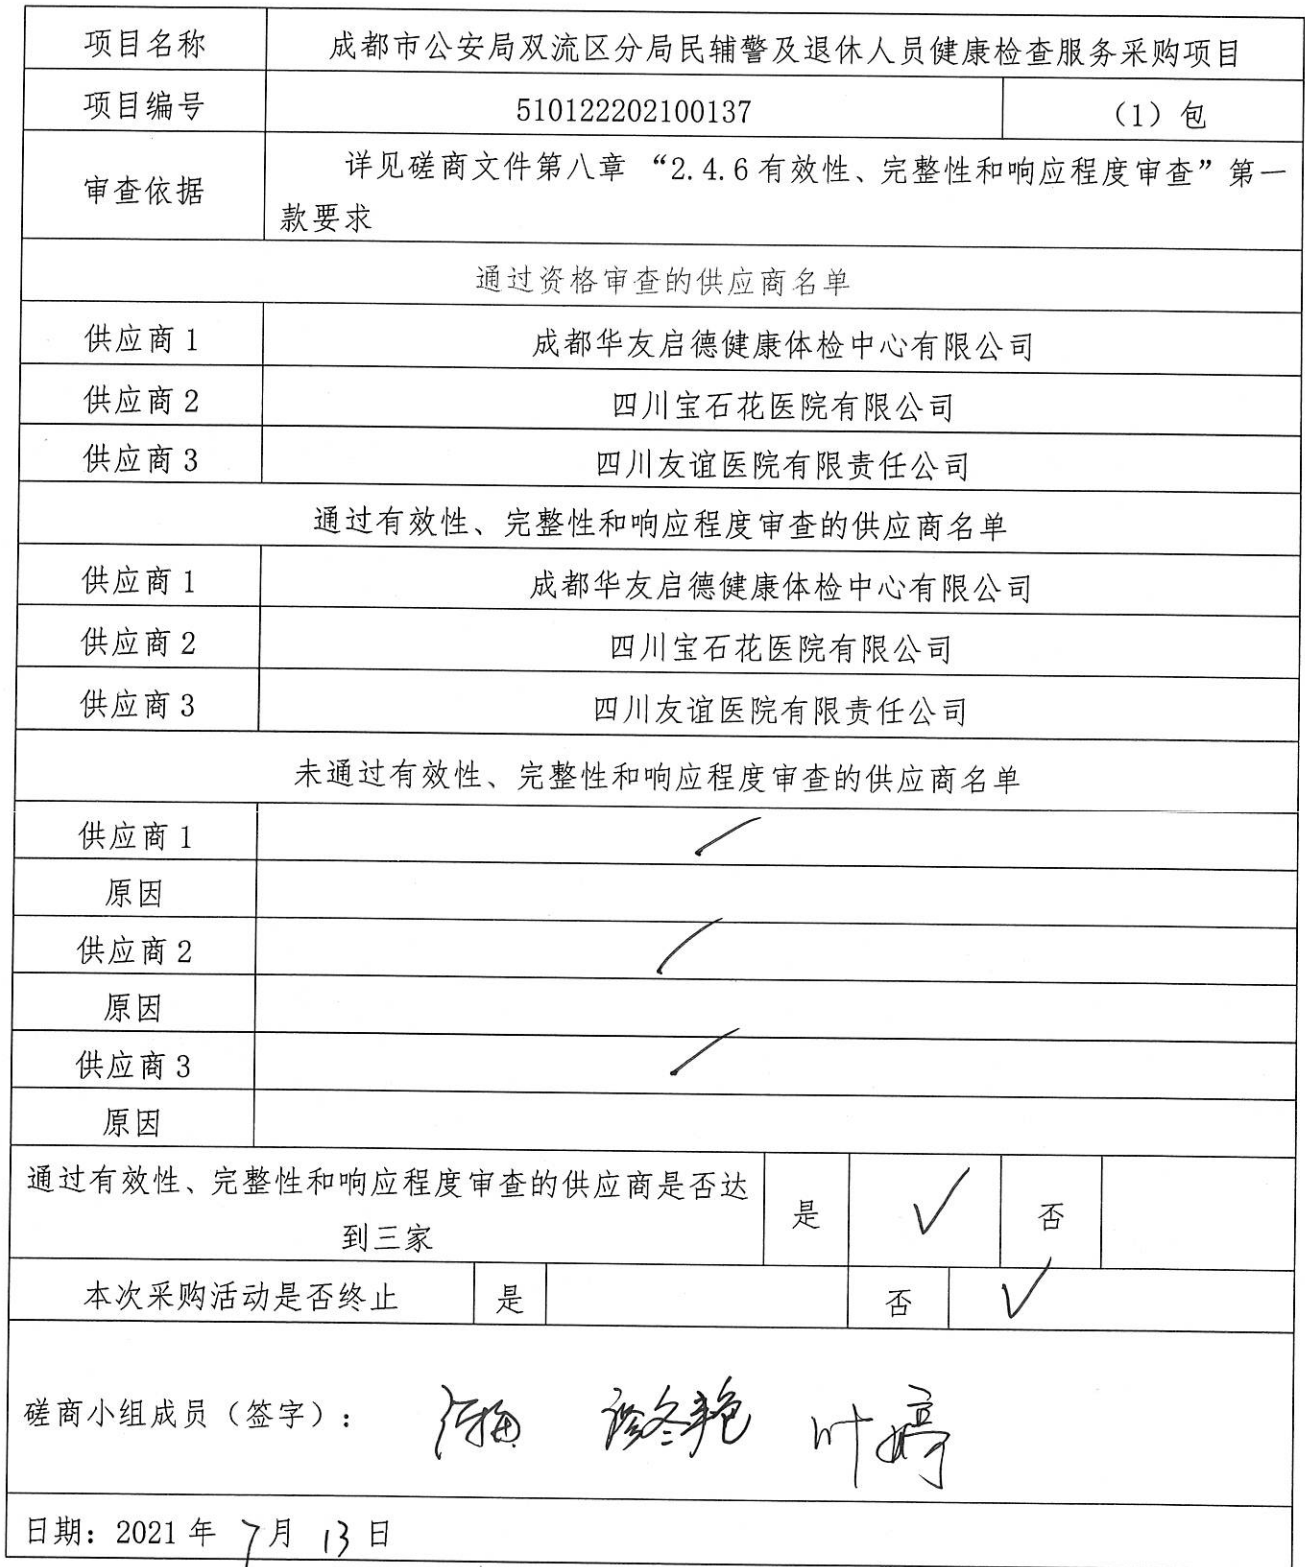 项目名称 成都市公安局双流区分局民辅警及退休人员健康检查服务采购项目
项目编号 510122202100137 （1）包
审查依据 详见磋商文件第八章 “2.4.6 有效性、完整性和响应程度审查”第一
款要求
通过资格审查的供应商名单
供应商 1 成都华友启德健康体检中心有限公司
供应商 2 四川宝石花医院有限公司
供应商 3 四川友谊医院有限责任公司
通过有效性、完整性和响应程度审查的供应商名单
供应商 1 成都华友启德健康体检中心有限公司
供应商 2 四川宝石花医院有限公司
供应商 3 四川友谊医院有限责任公司
未通过有效性、完整性和响应程度审查的供应商名单
供应商 1 /
原因
供应商 2 /
原因
供应商 3 /
原因
通过有效性、完整性和响应程度审查的供应商是否达
到三家 是 √ 否
本次采购活动是否终止 是 否 √
磋商小组成员（签字）： 叶婷
日期：2021 年 7 月 13 日